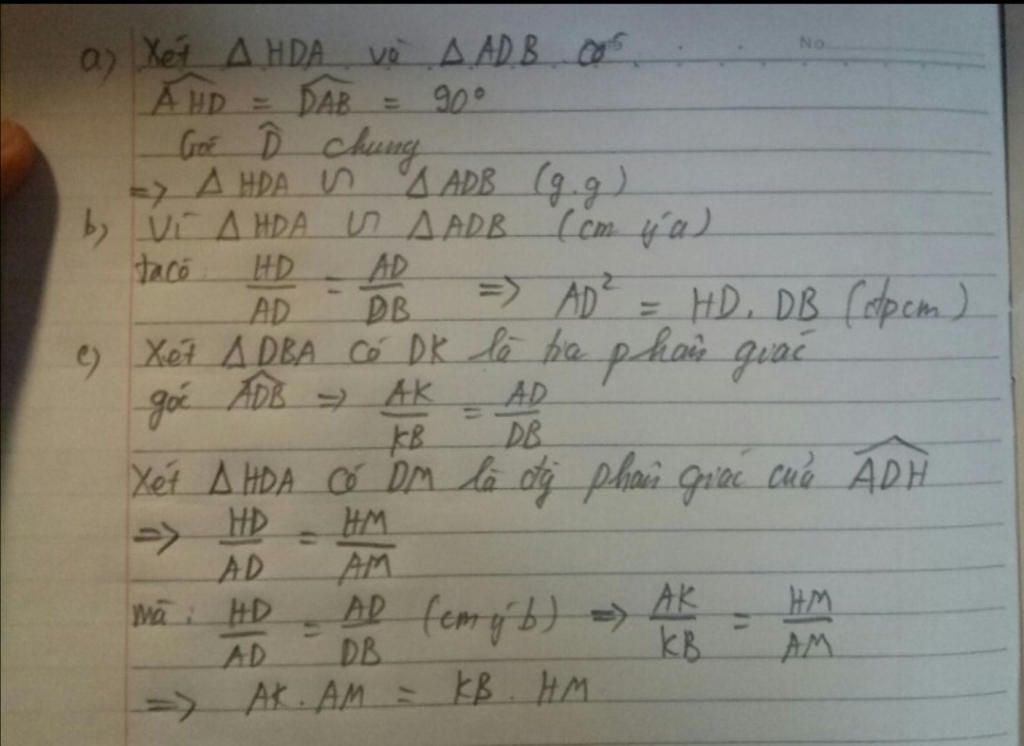 No
a) Xét Δ HDA và Δ ADB có
$\widehat{AHD}$ = $\widehat{DAB}$ = 90°
Góc $\widehat{D}$ chung
=> Δ HDA ∽ Δ ADB (g.g)
b) Vì Δ HDA ∽ Δ ADB (cm ý a)
ta có: $\frac{HD}{AD}$ = $\frac{AD}{DB}$ => AD² = HD. DB (đpcm)
c) Xét ΔDBA có DK là tia phân giác
góc $\widehat{ADB}$ => $\frac{AK}{KB}$ = $\frac{AD}{DB}$
Xét ΔHDA có DM là đg phân giác của $\widehat{ADH}$
=> $\frac{HD}{AD}$ = $\frac{HM}{AM}$
mà: $\frac{HD}{AD}$ = $\frac{AD}{DB}$ (cm ý b) => $\frac{AK}{KB}$ = $\frac{HM}{AM}$
=> AK. AM = KB. HM